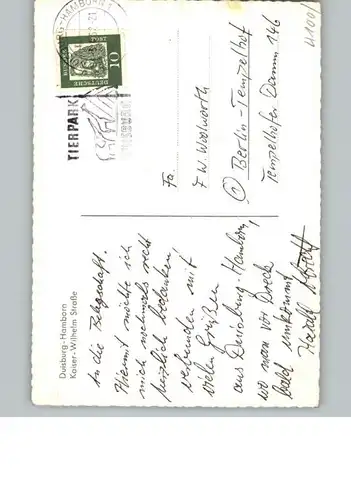 Duisburg-Hamborn
Kaiser-Wilhelm Straße
An die Belegschaft.
Hiermit möchte ich
mich nochmals recht
herzlich bedanken!
verbunden mit
vielen Grüßen
aus Duisburg-Hamborn,
wo man vor Dreck
bald umkommt
Harald
Fa.
F. W. Woolworth
Berlin-Tempelhof
Tempelhofer Damm 146
-HAMBORN 1
DEUTSCHE
BUNDESPOST
10
TIERPARK
DUISBURG